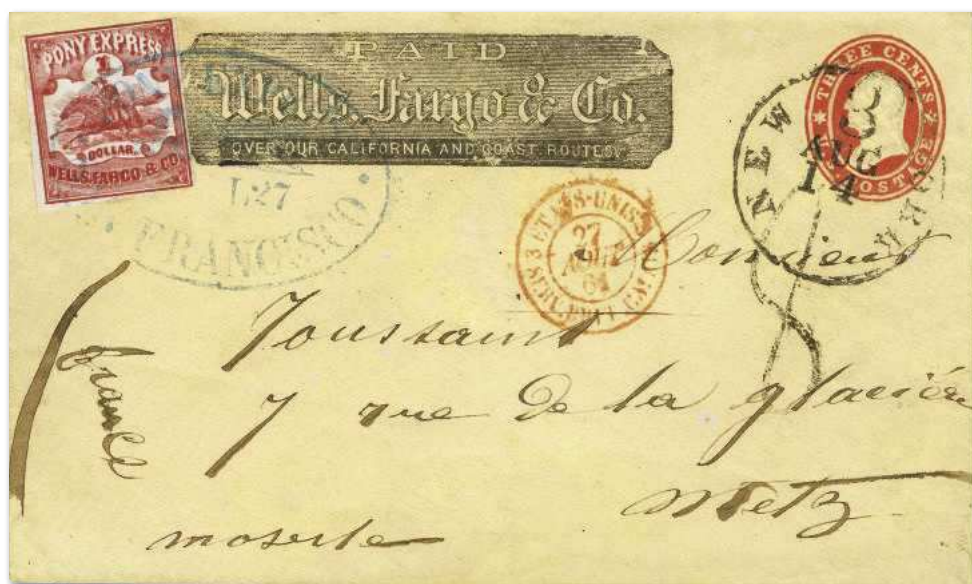 PONY EXPRESS
1
DOLLAR.
WELLS, FARGO & CO
PAID
Wells, Fargo & Co.
OVER OUR CALIFORNIA AND COAST ROUTES.
THREE CENTS
POSTAGE
NEW YORK
3
AUG
14
27
FRANCISCO.
3 ETATS-UNIS
27
AOUT
61
Monsieur
Toussaint
7 rue de la glacière
Metz
moselle
france
8